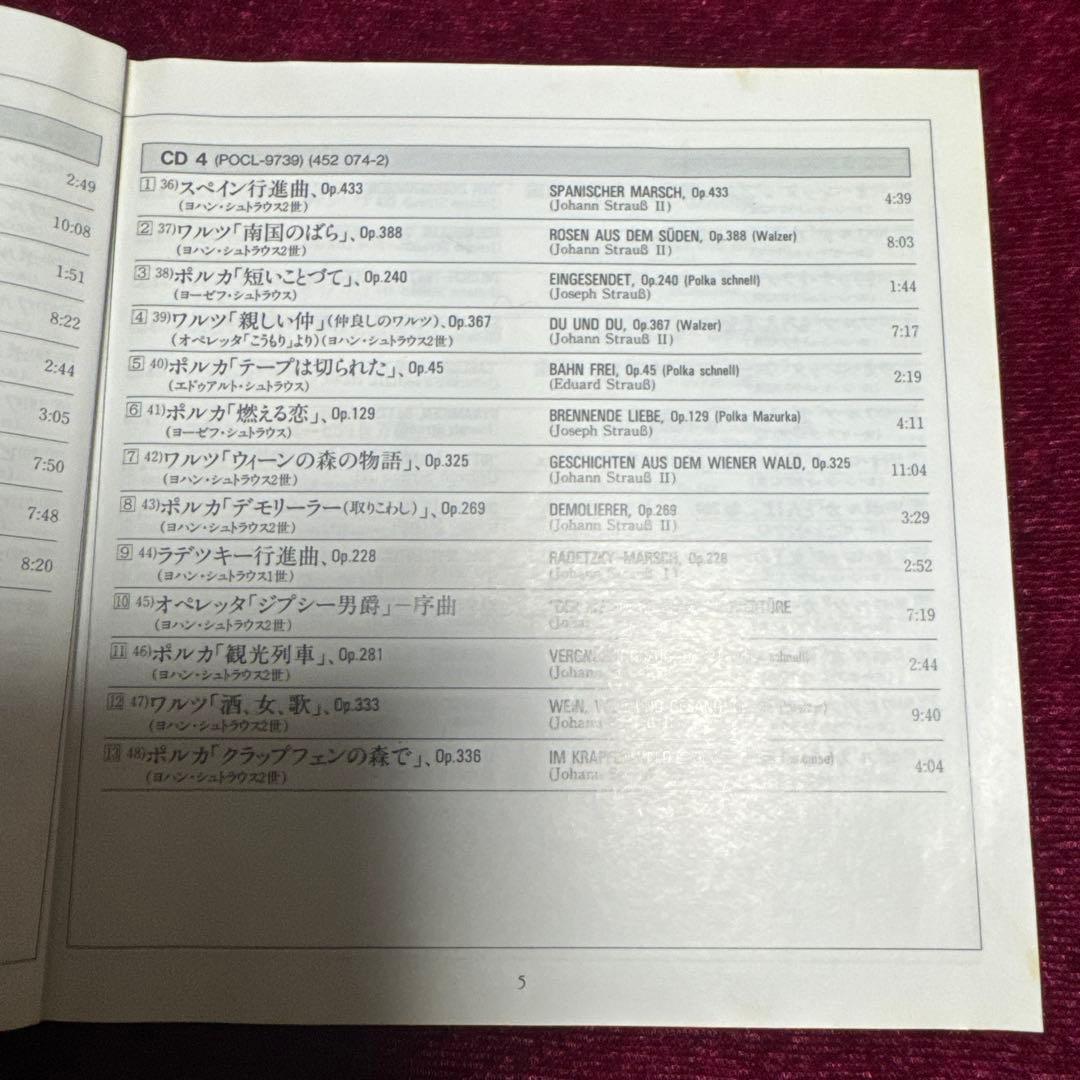 2:49
10:08
1:51
8:22
2:44
3:05
7:50
7:48
8:20
CD 4 (POCL-9739) (452 074-2)
1 36)スペイン行進曲、Op.433 SPANISCHER MARSCH, Op.433 4:39
(ヨハン・シュトラウス2世) (Johann Strauß II)
2 37)ワルツ「南国のばら」、Op.388 ROSEN AUS DEM SÜDEN, Op.388 (Walzer) 8:03
(ヨハン・シュトラウス2世) (Johann Strauß II)
3 38)ポルカ「短いことづて」、Op.240 EINGESENDET, Op.240 (Polka schnell) 1:44
(ヨーゼフ・シュトラウス) (Joseph Strauß)
4 39)ワルツ「親しい仲」(仲良しのワルツ)、Op.367 DU UND DU, Op.367 (Walzer) 7:17
(オペレッタ「こうもり」より)(ヨハン・シュトラウス2世) (Johann Strauß II)
5 40)ポルカ「テープは切られた」、Op.45 BAHN FREI, Op.45 (Polka schnell) 2:19
(エドゥアルト・シュトラウス) (Eduard Strauß)
6 41)ポルカ「燃える恋」、Op.129 BRENNENDE LIEBE, Op.129 (Polka Mazurka) 4:11
(ヨーゼフ・シュトラウス) (Joseph Strauß)
7 42)ワルツ「ウィーンの森の物語」、Op.325 GESCHICHTEN AUS DEM WIENER WALD, Op.325 11:04
(ヨハン・シュトラウス2世) (Johann Strauß II)
8 43)ポルカ「デモリーラー(取りこわし)」、Op.269 DEMOLIERER, Op.269 3:29
(ヨハン・シュトラウス2世) (Johann Strauß II)
9 44)ラデツキー行進曲、Op.228 RADETZKY-MARSCH, Op.228 2:52
(ヨハン・シュトラウス1世) (Johann
10 45)オペレッタ「ジプシー男爵」―序曲 "DER 7:19
(ヨハン・シュトラウス2世)
11 46)ポルカ「観光列車」、Op.281 schnell) 2:44
(ヨハン・シュトラウス2世) (Johann
12 47)ワルツ「酒、女、歌」、Op.333 WEIN, 9:40
(ヨハン・シュトラウス2世) (Johann
13 48)ポルカ「クラップフェンの森で」、Op.336 IM 4:04
(ヨハン・シュトラウス2世) (Johann
5